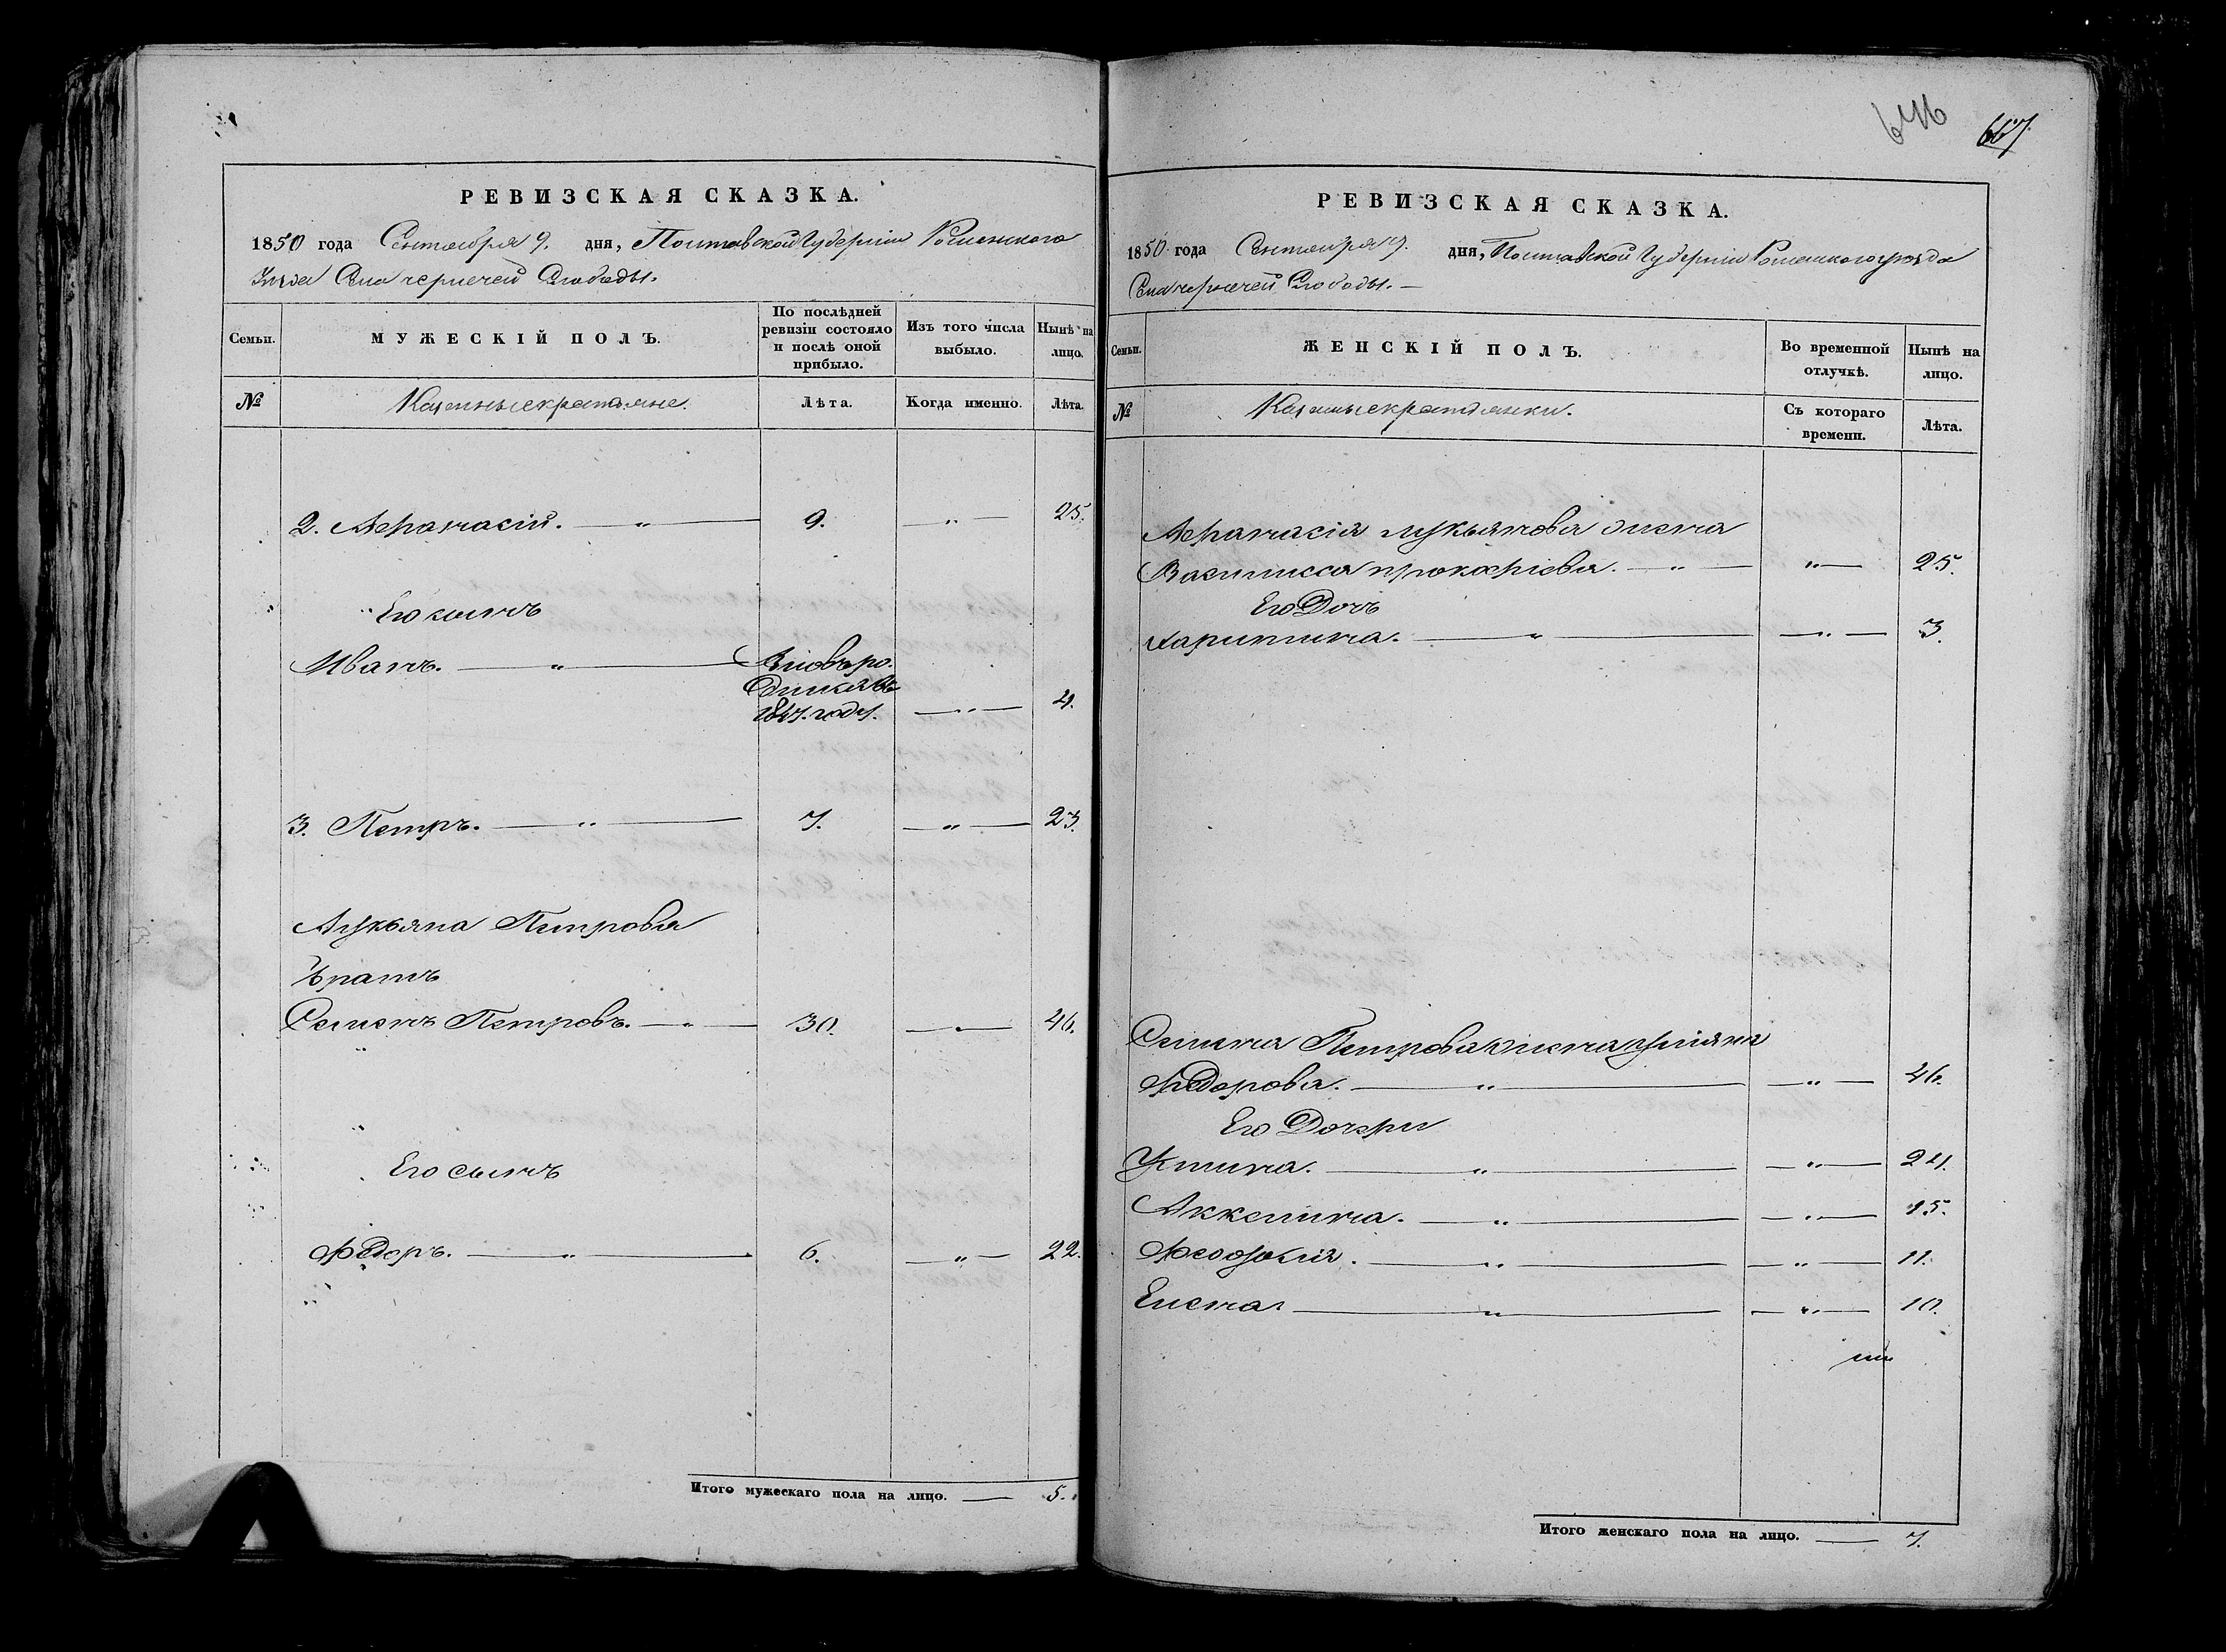 646 667.
РЕВИЗСКАЯ СКАЗКА.
1850 года Сентября 9. дня, Полтавской Губерніи Роменского
Уезда Села черпечей Слободы.
Семьи. МУЖЕСКІЙ ПОЛЪ. По послѣдней ревизіи состояло и послѣ оной прибыло. Изъ того числа выбыло. Нынѣ на лицо.
№ Казенные крестьяне. Лѣта. Когда именно. Лѣта.
2. Афанасій. — " — 9. — " — 25.
Его сынъ
Иванъ. — " — Вновь ро-
дился въ
1847. году. — " — 4.
3. Петръ. — " — 7. — " — 23.
Лукьяна Петрова
братъ
Семенъ Петровъ. — " — 30. — " — 46.
Его сынъ
Федоръ. — " — 6. — " — 22.
Итого мужескаго пола на лицо. — 5.
РЕВИЗСКАЯ СКАЗКА.
1850 года Сентября 9. дня, Полтавской Губерніи Роменского уезда
Села черпечей Слободы. —
Семьи. ЖЕНСКІЙ ПОЛЪ. Во временной отлучкѣ. Нынѣ на лицо.
№ Казенные крестьянки. Съ котораго времени. Лѣта.
Афанасія лукьянова жена
Василисса прокофіева. — " — " — 25.
Его Дочь
харитина. — " — " — 3.
Семена Петрова жена уліяна
Федорова. — " — " — 46.
Его Дочери
Устина. — " — " — 21.
Аккилина. — " — " — 15.
Феодосія. — " — " — 11.
Елена. — " — " — 10.
Итого женскаго пола на лицо. — 7.